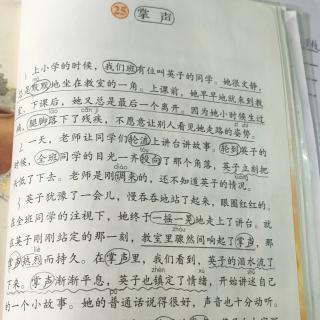 25 掌声
上小学的时候，我们班有位叫英子的同学。她很文静，
总是默默地坐在教室的一角。上课前，她早早地就来到教
室，下课后，她又总是最后一个离开。因为她小时候生过
病，腿脚落下了残疾，不愿意让别人看见她走路的姿势。
一天，老师让同学们轮流上讲台讲故事。轮到英子的
时候，全班同学的目光一齐投向了那个角落，英子立刻把
头低了下去。老师是刚调来的，还不知道英子的情况。
英子犹豫了一会儿，慢吞吞地站了起来，眼圈红红的。
在全班同学的注视下，她终于一摇一晃地走上了讲台。就
在英子刚刚站定的那一刻，教室里骤然间响起了掌声，那
掌声热烈而持久。在掌声里，我们看到，英子的泪水流了
下来。掌声渐渐平息，英子也镇定了情绪，开始讲述自己
的一个小故事。她的普通话说得很好，声音也十分动听。